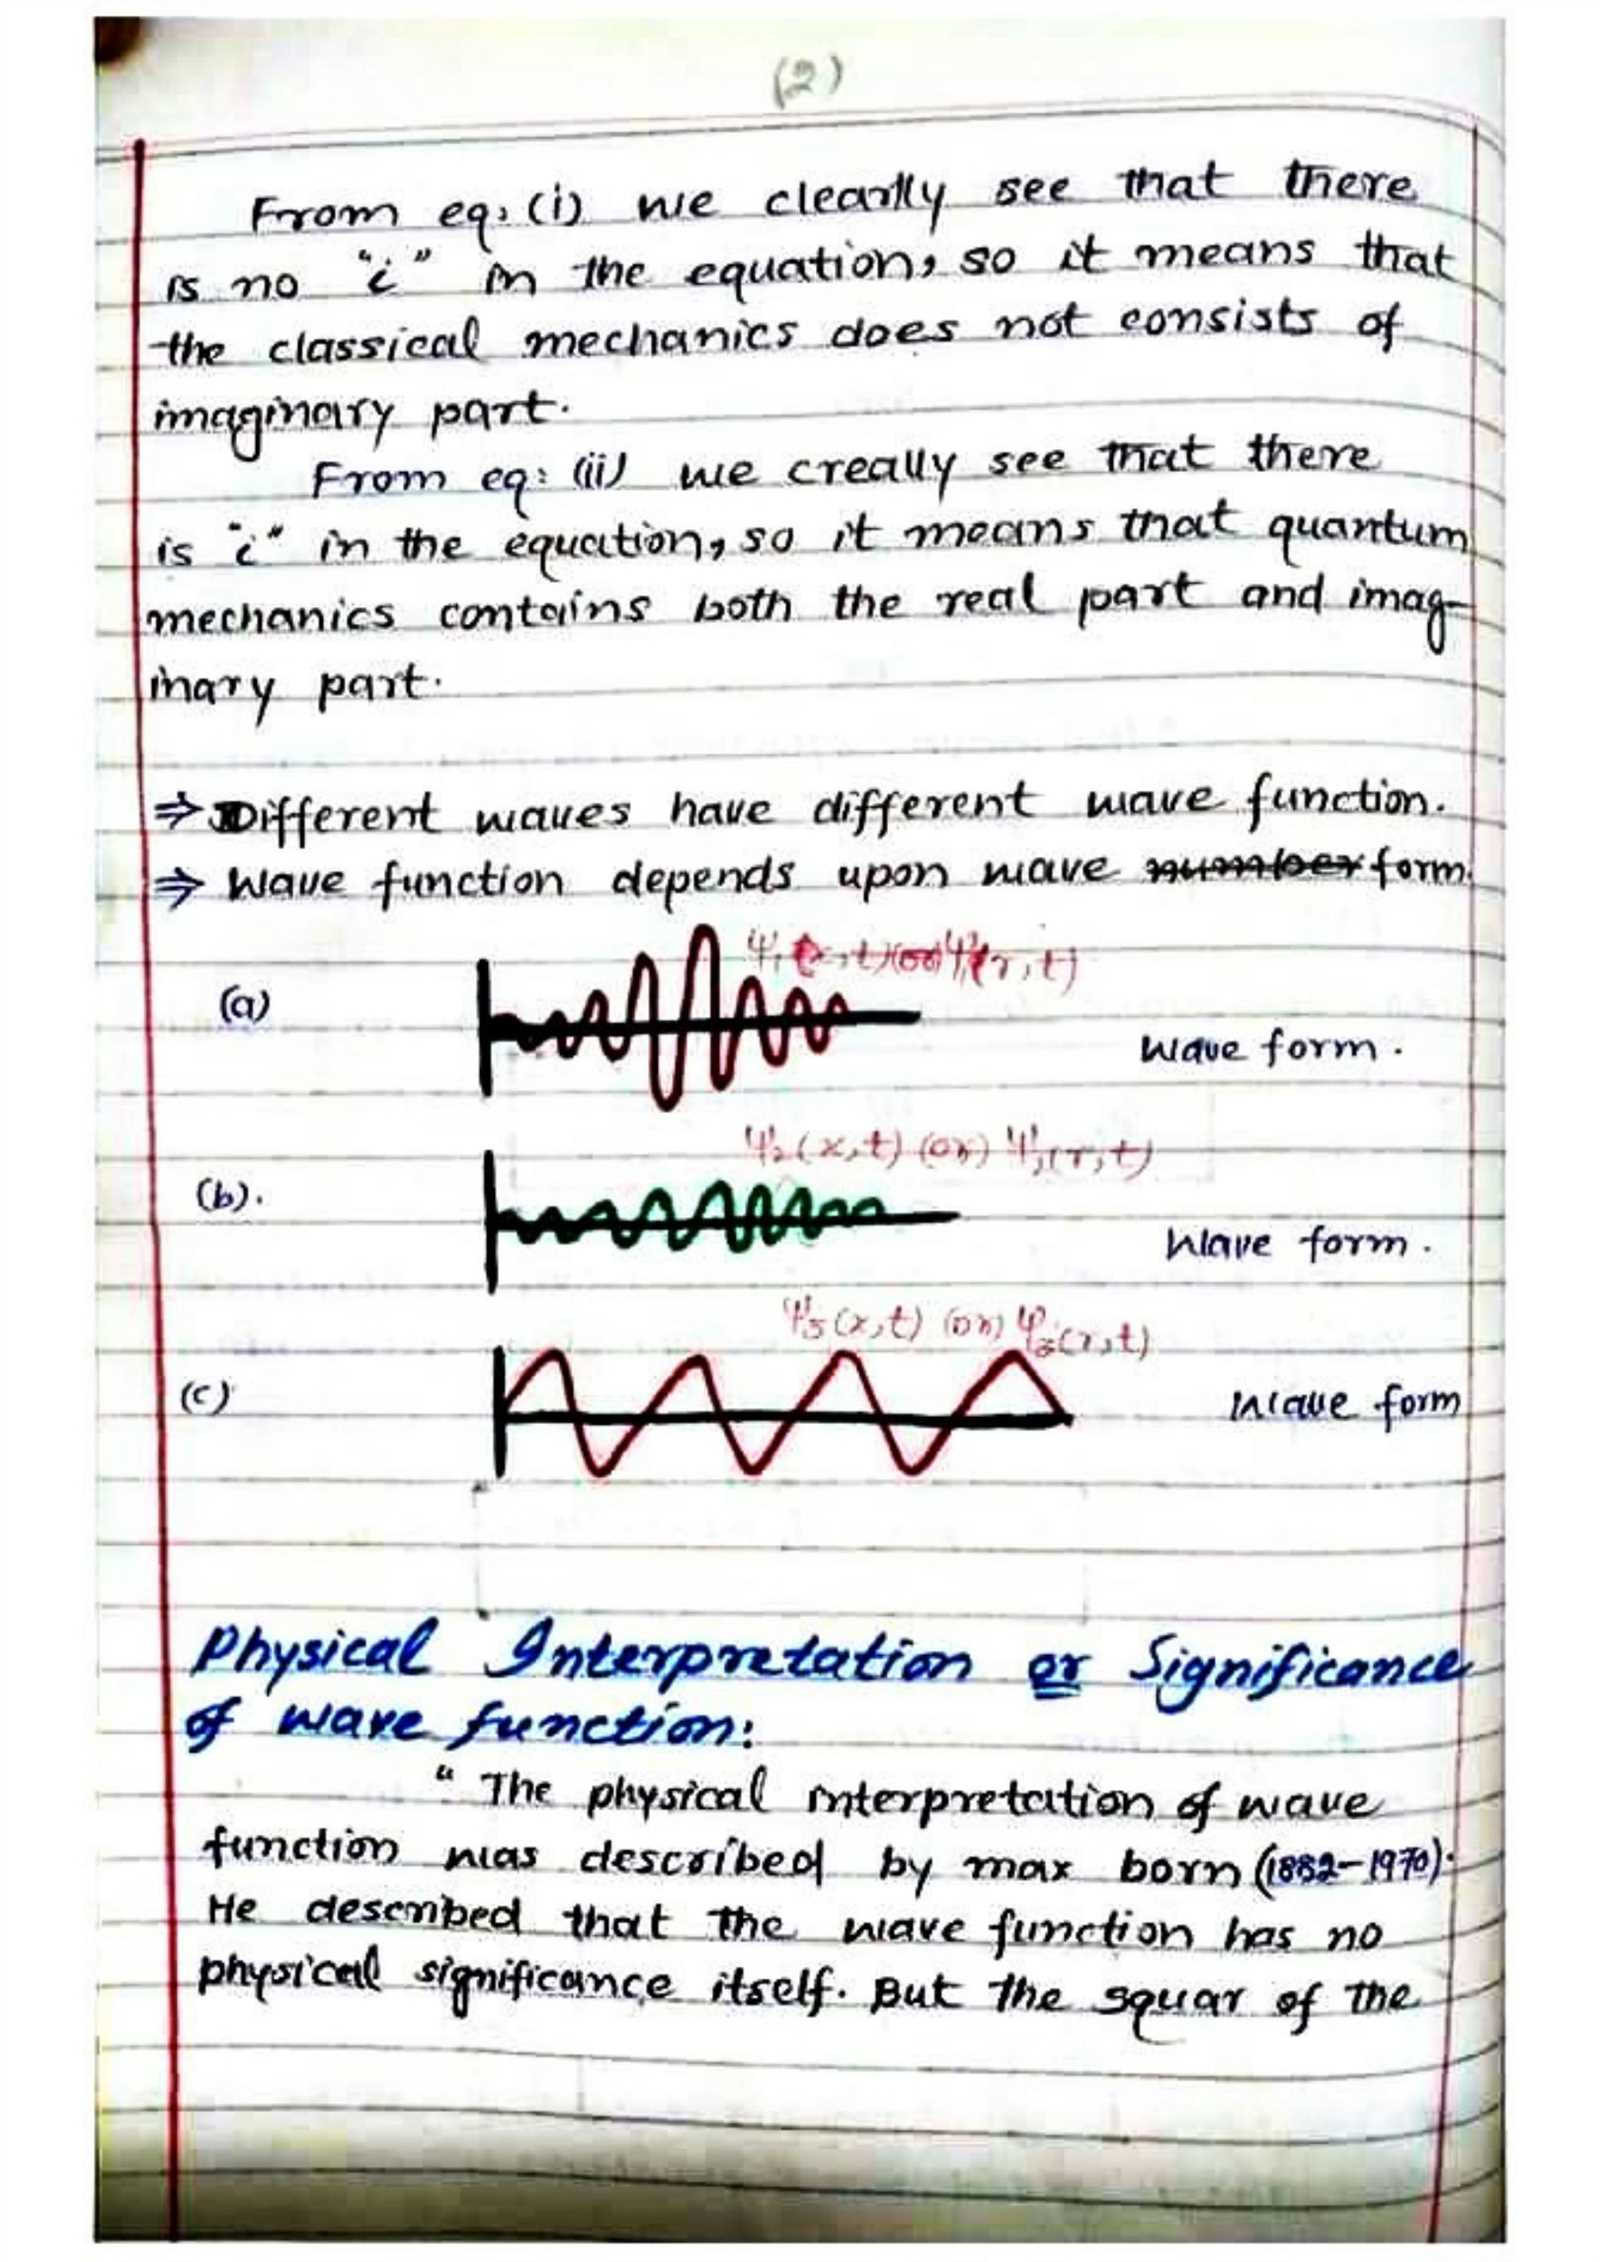 (2)
From eq: (i) we clearlly see that there
is no "i" in the equation, so it means that
the classical mechanics does not consists of
imaginary part.
From eq: (ii) we creally see that there
is "i" in the equation, so it means that quantum
mechanics contains both the real part and imag-
inary part.
⇒ Different waves have different wave function.
⇒ Wave function depends upon wave number form.
Ψ₁(x,t) (or) Ψ₁(r,t)
(a)
Wave form.
Ψ₂(x,t) (or) Ψ₂(r,t)
(b).
Wave form.
Ψ₃(x,t) (or) Ψ₃(r,t)
(c)
Wave form
Physical Interpretation or Significance
of wave function:
" The physical interpretation of wave
function was described by max born (1882-1970).
He described that the wave function has no
physical significance itself. But the squar of the